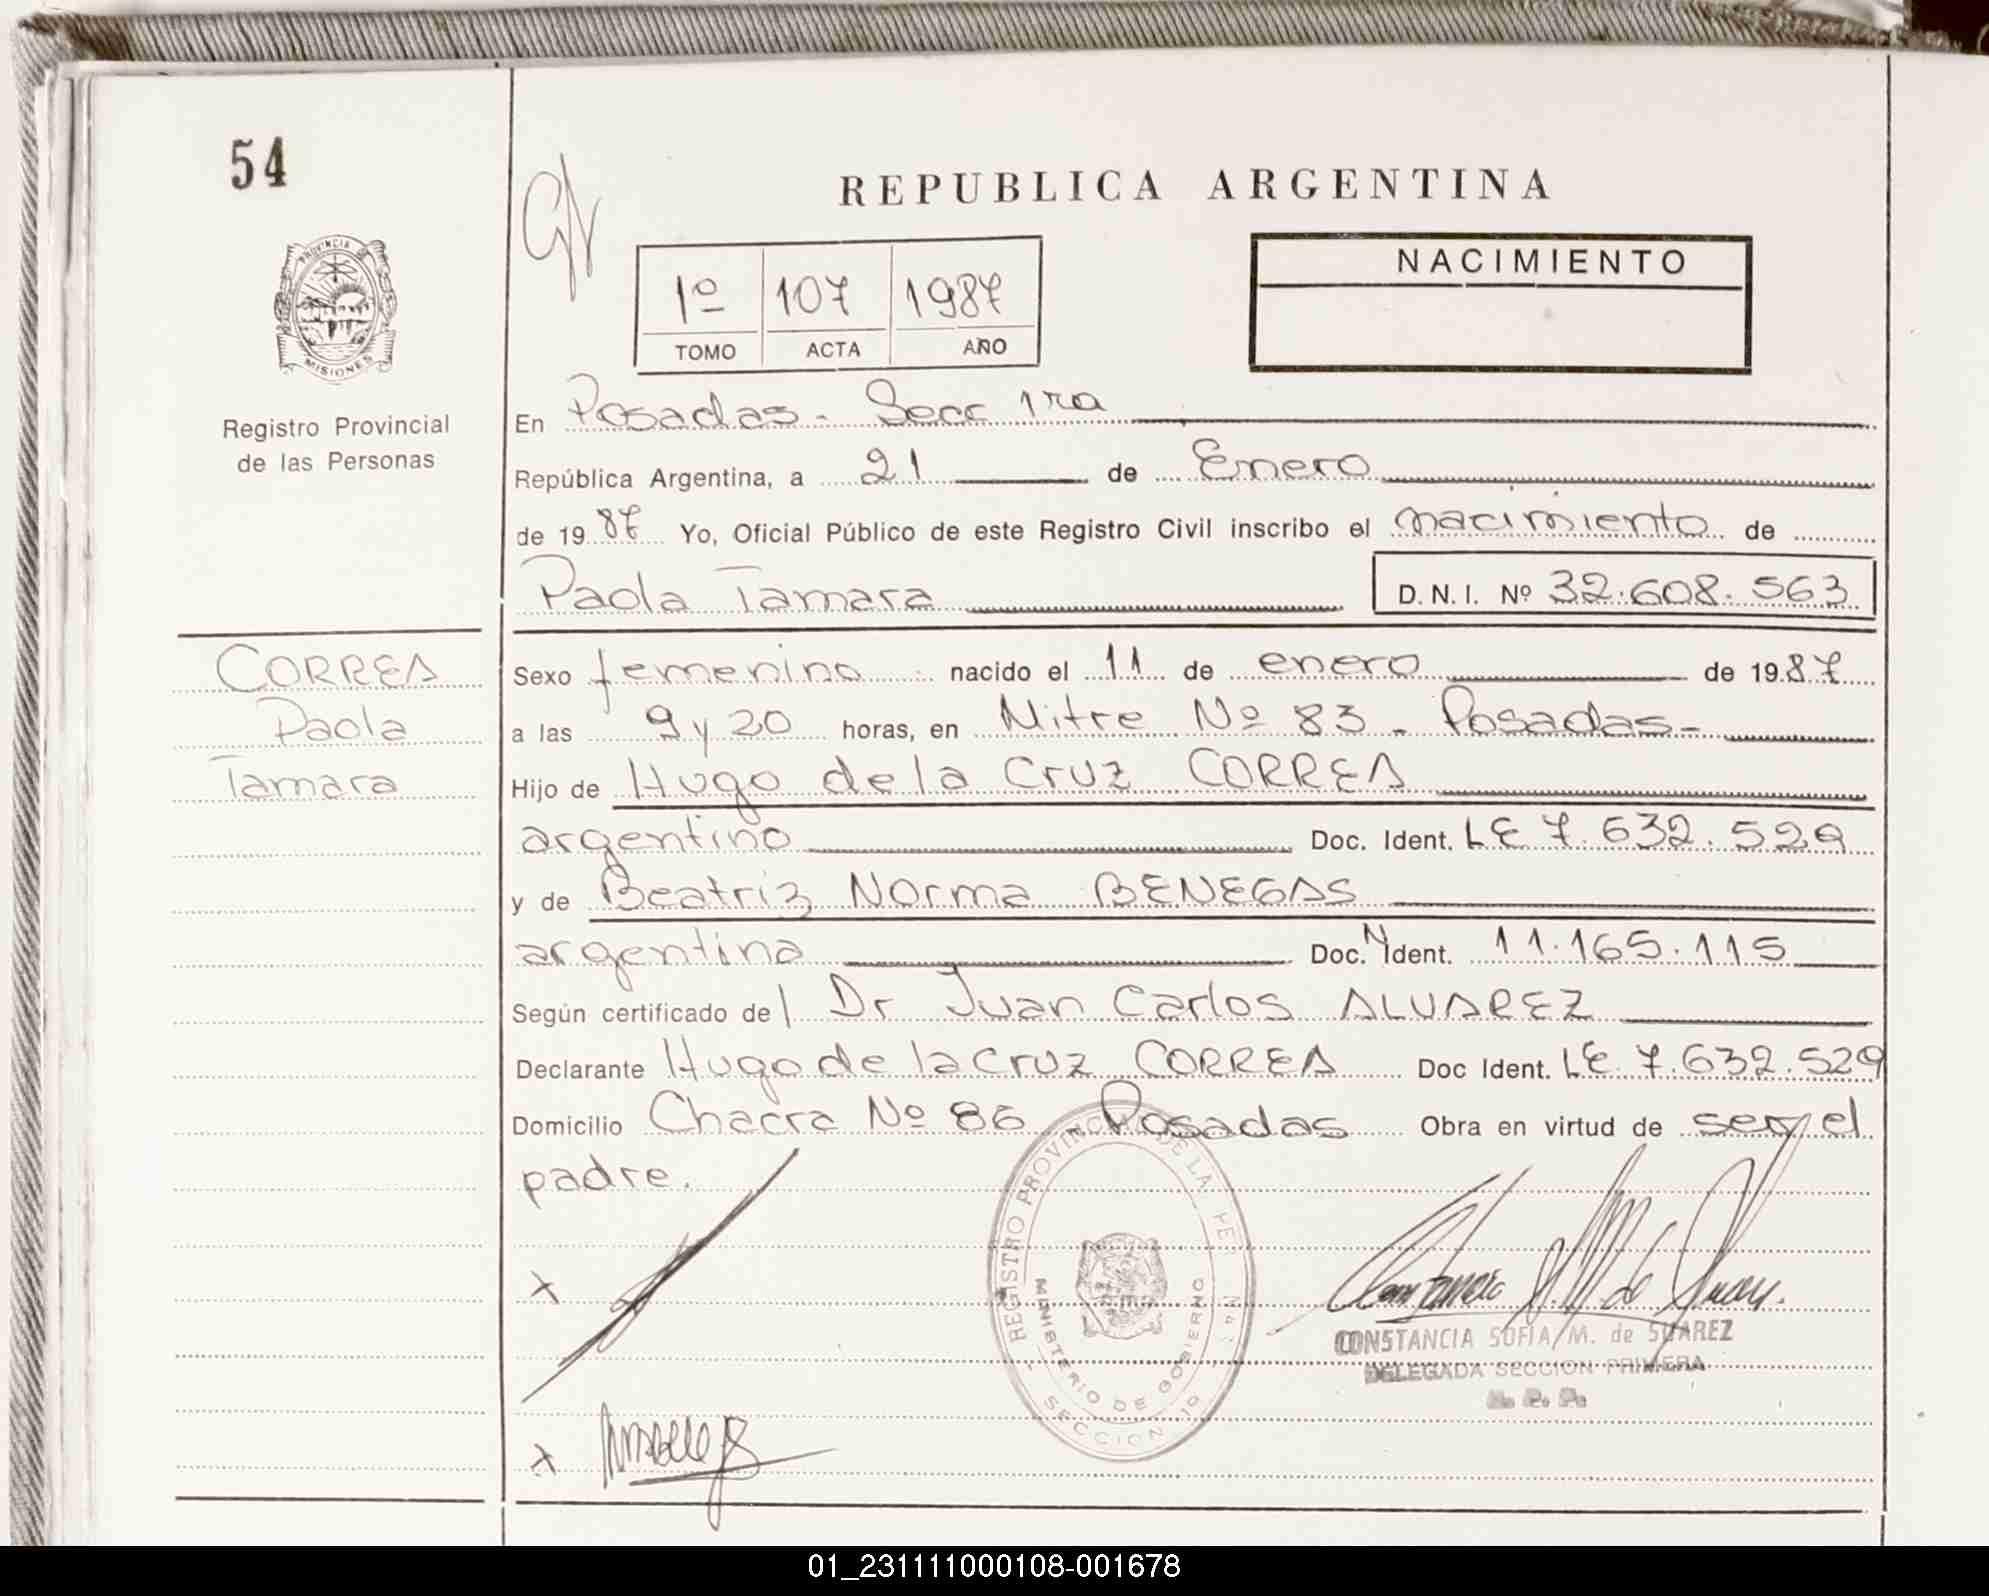 54
REPUBLICA ARGENTINA
PROVINCIA DE
MISIONES
Registro Provincial
de las Personas
1º 107 1987
TOMO ACTA AÑO
NACIMIENTO
En Posadas - Secc 1ra
República Argentina, a 21 de Enero
de 1987 Yo, Oficial Público de este Registro Civil inscribo el nacimiento de
Paola Tamara D. N. I. Nº 32.608.563
CORREA
Paola
Tamara
Sexo femenino nacido el 11 de enero de 1987
a las 9 y 20 horas, en Mitre Nº 83 - Posadas -
Hijo de Hugo de la Cruz CORREA
argentino Doc. Ident. LE 7.632.529
y de Beatriz Norma BENEGAS
argentina Doc. N Ident. 11.165.115
Según certificado del Dr Juan Carlos ALVAREZ
Declarante Hugo de la Cruz CORREA Doc Ident. LE 7.632.529
Domicilio Chacra Nº 86 - Posadas Obra en virtud de ser el
padre.
x
x
REGISTRO PROVINCIAL DE LA
MINISTERIO DE GOBIERNO
SECCION 1a
CONSTANCIA SOFIA M. de SUAREZ
DELEGADA SECCION PRIMERA
01_231111000108-001678